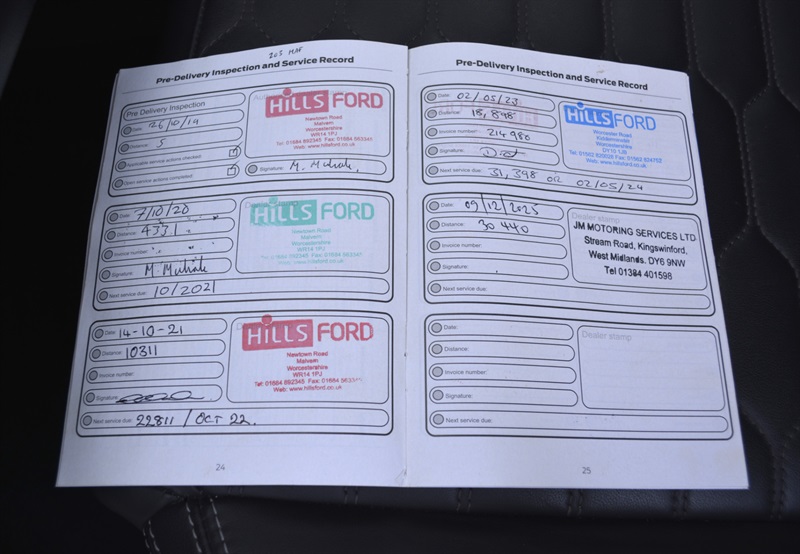 Pre-Delivery Inspection and Service Record
Pre Delivery Inspection
Date: 26/10/19
Distance: 5
Applicable service actions checked
Open service actions completed
HILLS FORD
Newtown Road
Malvern
Worcestershire
WR14 1PJ
Web: www.hillsford.co.uk
Signature:
Date: 7/10/20
Distance: 4331
Invoice number
Signature:
Next service due: 10/2021
HILLS FORD
Newtown Road
Malvern
Worcestershire
WR14 1PJ
Web: www.hillsford.co.uk
Date: 14-10-21
Distance: 10311
Invoice number:
Signature:
Next service due: 22811 / OCT 22.
HILLS FORD
Newtown Road
Malvern
Worcestershire
WR14 1PJ
Web: www.hillsford.co.uk
24
Pre-Delivery Inspection and Service Record
Date: 02/05/23
Distance: 18,898
Invoice number: 214980
Signature:
Next service due: 31,398 OR 02/05/24
HILLS FORD
Worcester Road
Kidderminster
DY10 1JB
Web: www.hillsford.co.uk
Date: 09/12/2025
Distance: 30 440
Invoice number:
Signature:
Next service due:
Dealer stamp
JM MOTORING SERVICES LTD
Stream Road, Kingswinford,
West Midlands. DY6 9NW
Tel 01384 401598
Date:
Distance:
Invoice number:
Signature:
Next service due:
Dealer stamp
25